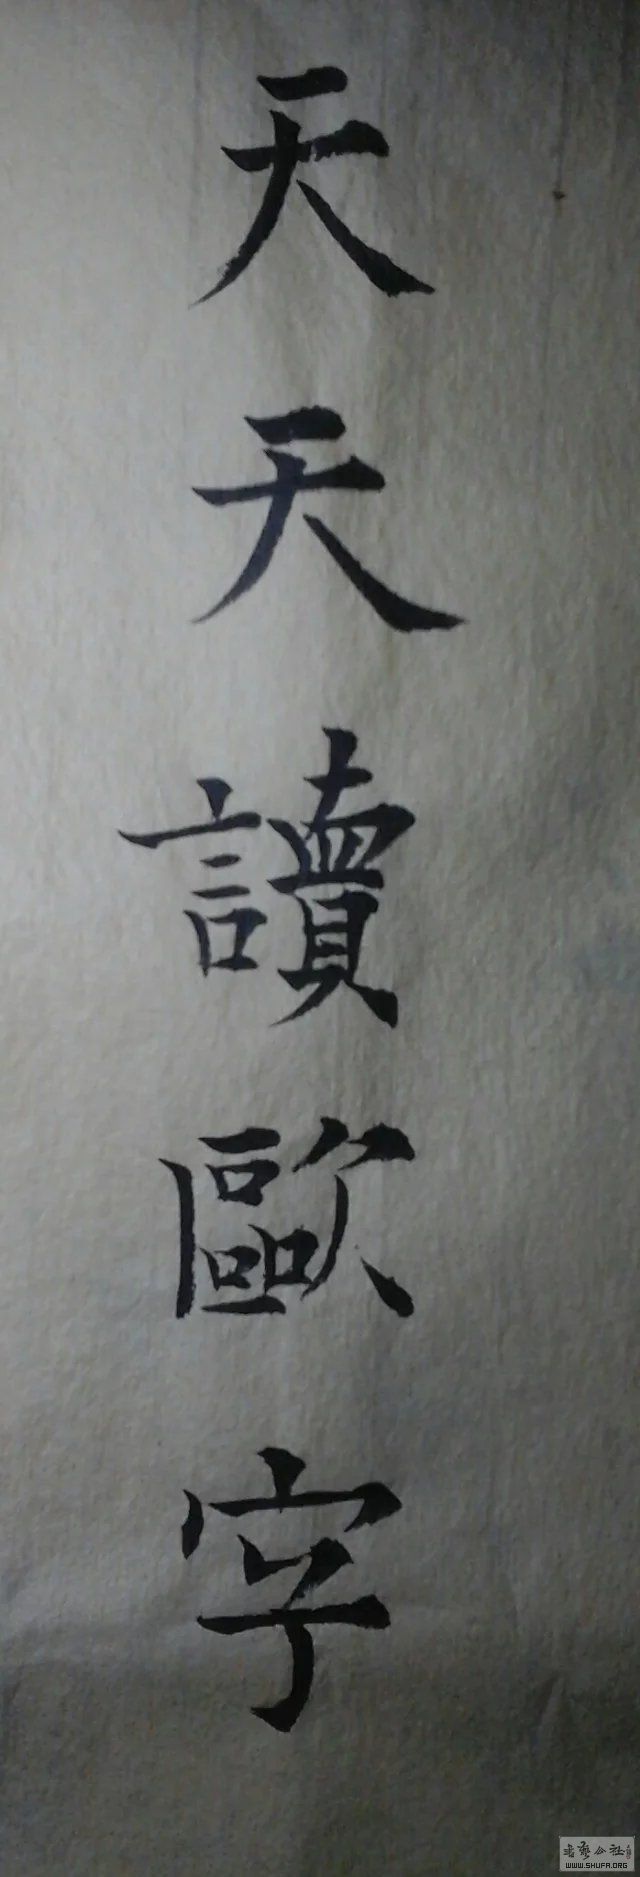 天天讀歐字
书艺公社
WWW.SHUFA.ORG